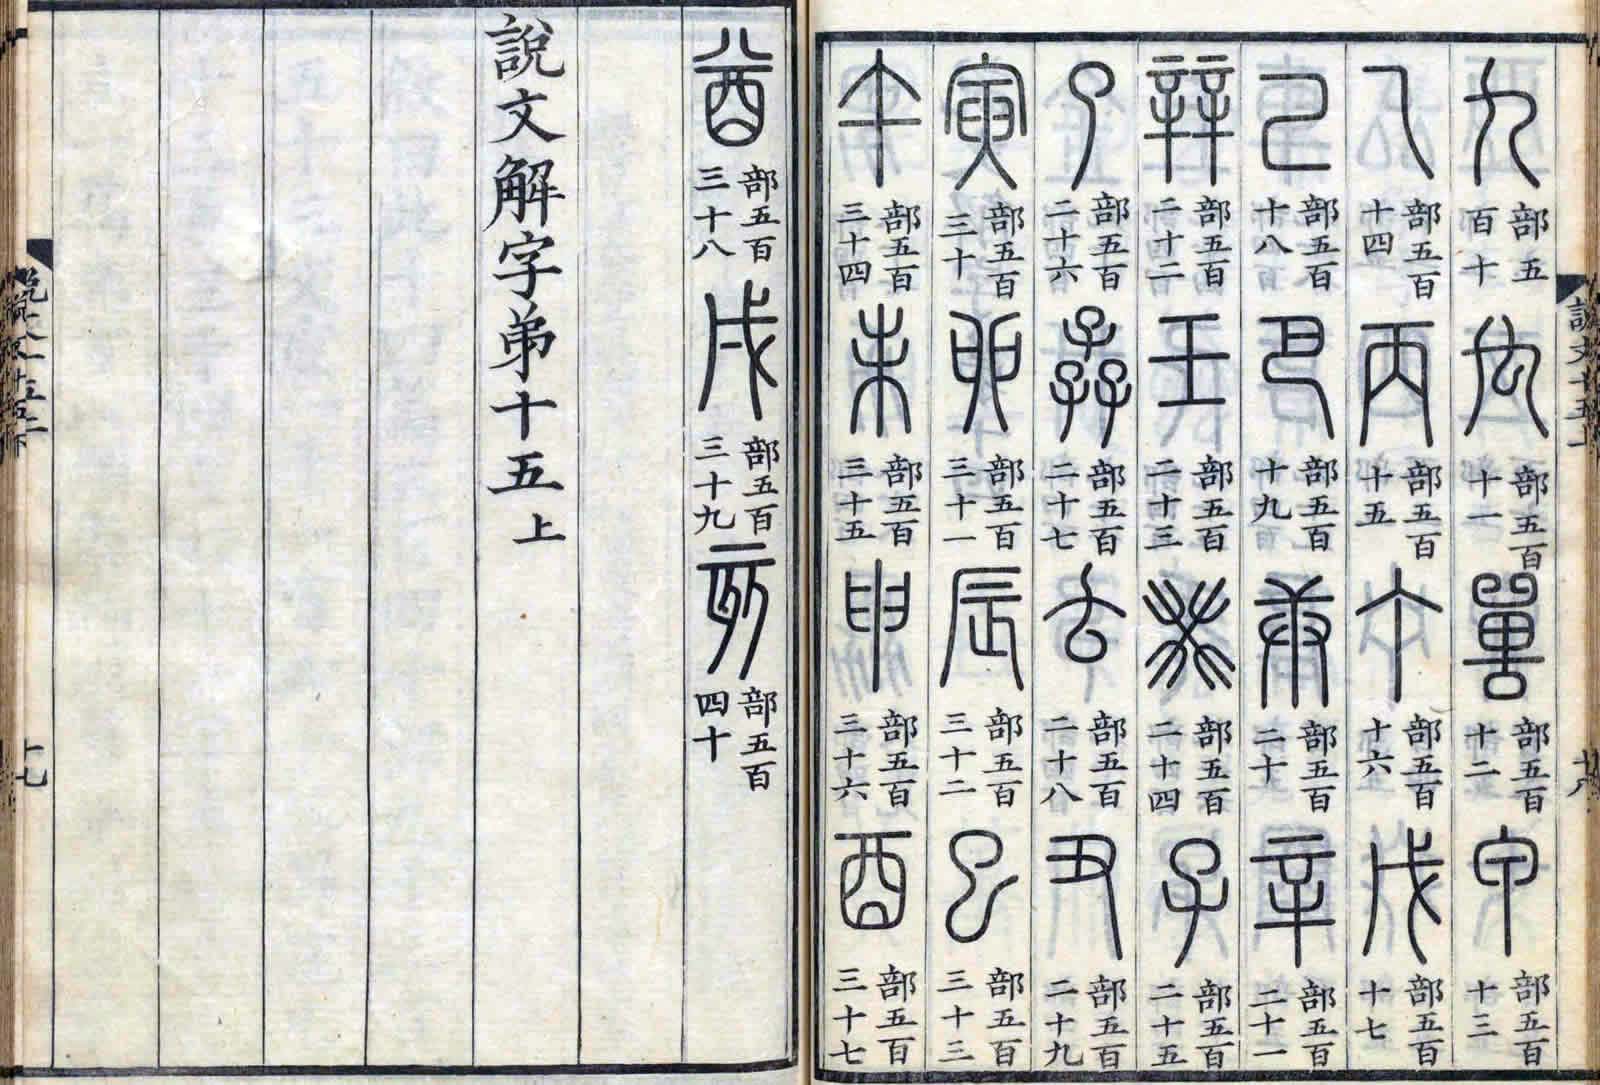 九部五百十禸部五百十一嘼部五百十二甲部五百十三
乙部五百十四丙部五百十五丁部五百十六戊部五百十七
己部五百十八巴部五百十九庚部五百二十辛部五百二十一
辡部五百二十二壬部五百二十三癸部五百二十四子部五百二十五
了部五百二十六孨部五百二十七𠫓部五百二十八丑部五百二十九
寅部五百三十卯部五百三十一辰部五百三十二巳部五百三十三
午部五百三十四未部五百三十五申部五百三十六酉部五百三十七
酋部五百三十八戌部五百三十九亥部五百四十
說文解字弟十五上